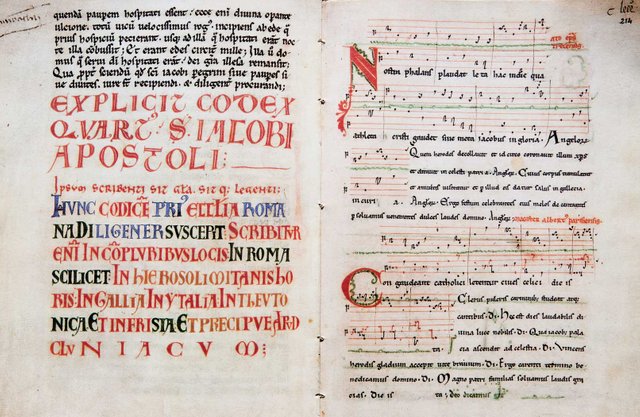 quendā paupem hospitati essent. ecce enī divina opante
ulcione. totū vicū velocissimus rog; incipiens ab ede q̄
prius hospiciū pecierant. usq; ad illā q̄ hospitati erant noc
te illa cōbussit; Et erant edes circit mille; Illa ū do
m; q̄ servi dī hospitati erāt; dei grā illesa remansit;
Qua ppt sciendū qd sci iacobi pegrini sive paupes si
ve divites. iure st recipiendi. & diligent procurandi;
EXPLICIT CODEX
QUARTꝰ S. IACOBI
APOSTOLI:
Ipsum scribenti sit gła. sit q; legenti:
HUNC CODICĒ PRIꝰ ECCLIA ROMA
NA DILIGENTER SUSCEPIT. SCRIBITUR
ENĪ IN CŌPLURIBUS LOCIS. IN ROMA
SCILICET. IN HIEROSOLIMITANIS HO
RIS. IN GALLIA. IN YTALIA. IN THEUTO
NICA. ET IN FRISIA. ET PRECIPUE APUD
CLUNIACUM:
214
Nostra phalans plaudat leta hac in die qua
athleta cristi gaudet sine meta iacobus in gloria. Angelorum
Quem herodes decollavit et id circo coronavit illum xps
et ditavit in celesti patria. Angłor. Cuius corpus tumulatur
et a multis visitatur et p illud eis datur salus in gallecia.
in curia. Ergo festum celebrantes eius melos decantantes
psolvamus venerantes dulces laudes domino. Angłor.
magister albertꝰ parisiensis
Congaudeant catholici letentur cives celici die is
Clerus pulcris carminibus studeat atq;
cantibus. Di. Hec est dies laudabilis di
vina luce nobilis. Di. Qua iacobꝰ pala
cia ascendit ad celestia. Di. Vincens
herodis gladium accepit vite bravium. Di. Ergo carenti termino be
nedicamus domino. Di. Magno patri familias solvamus laudis gra
cias. Die is